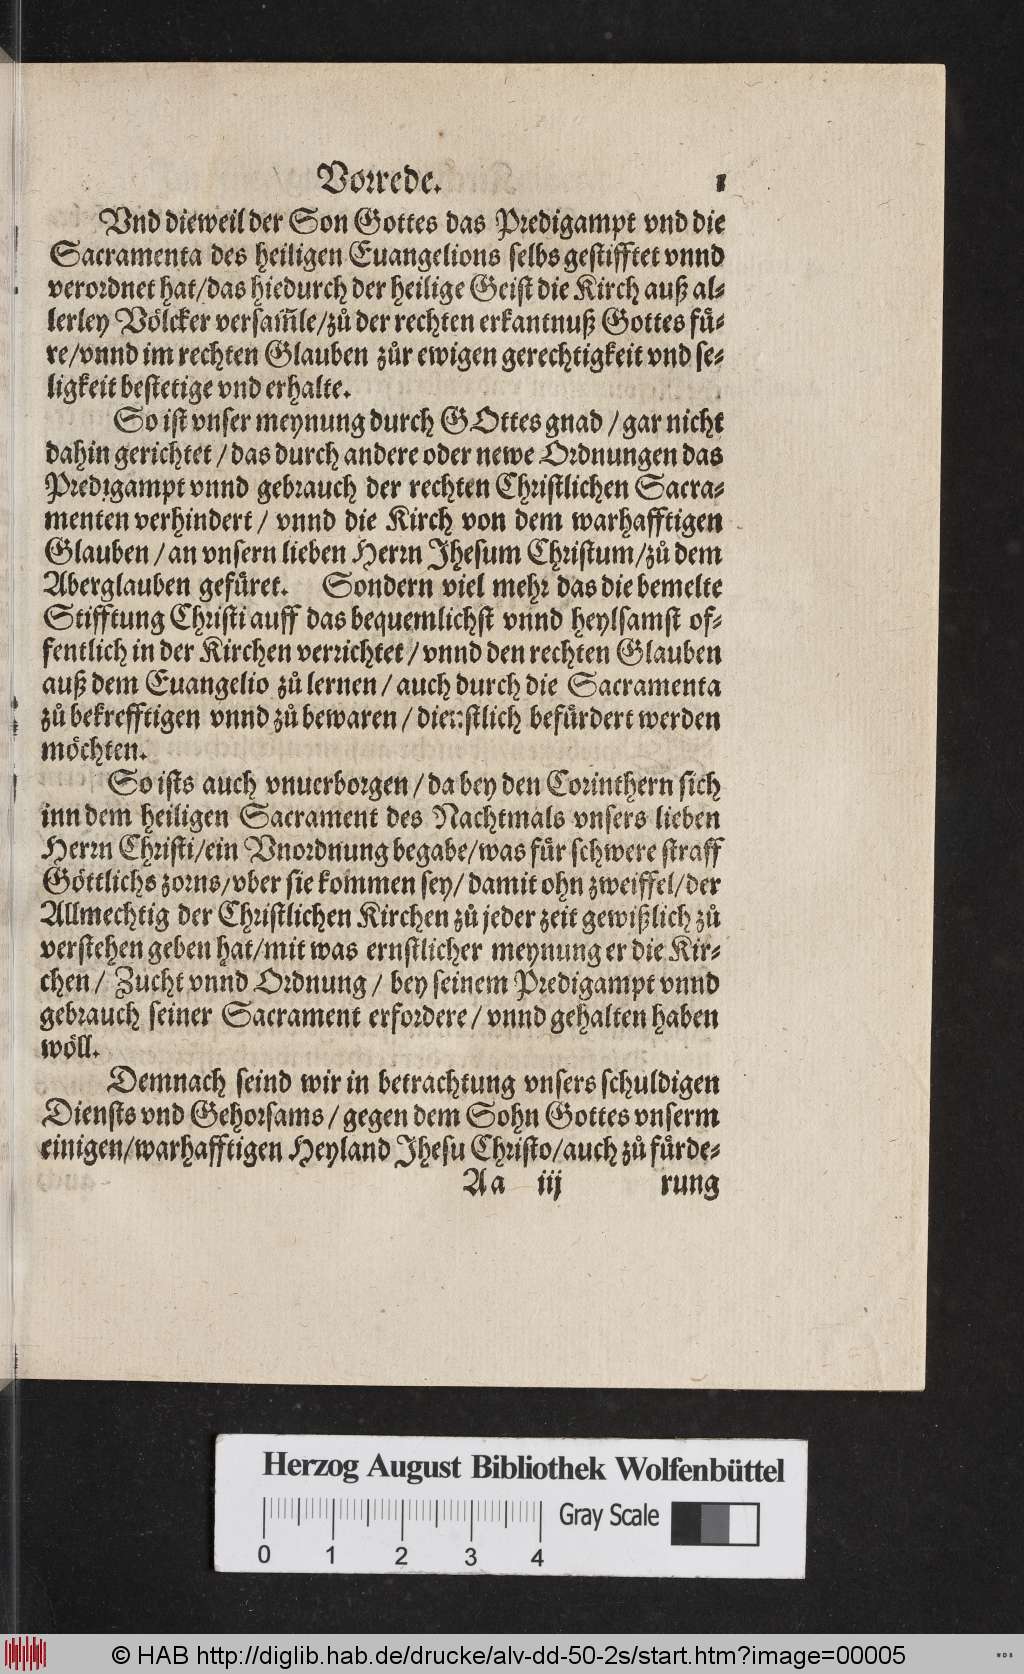 Vorrede. 1
Vnd dieweil der Son Gottes das Predigampt vnd die
Sacramenta des heiligen Euangelions selbs gestifftet vnnd
verordnet hat/das hiedurch der heilige Geist die Kirch auß al-
lerley Völcker versam̃le/zů der rechten erkantnuß Gottes fü-
re/vnnd im rechten Glauben zůr ewigen gerechtigkeit vnd se-
ligkeit bestetige vnd erhalte.
So ist vnser meynung durch GOttes gnad/gar nicht
dahin gerichtet/das durch andere oder newe Ordnungen das
Predigampt vnnd gebrauch der rechten Christlichen Sacra-
menten verhindert/vnnd die Kirch von dem warhafftigen
Glauben/an vnsern lieben Herrn Jhesum Christum/zů dem
Aberglauben gefüret. Sondern viel mehr das die bemelte
Stifftung Christi auff das bequemlichst vnnd heylsamst of-
fentlich in der Kirchen verrichtet/vnnd den rechten Glauben
auß dem Euangelio zů lernen/auch durch die Sacramenta
zů bekrefftigen vnnd zů bewaren/dienstlich befürdert werden
möchten.
So ists auch vnuerborgen/da bey den Corinthern sich
inn dem heiligen Sacrament des Nachtmals vnsers lieben
Herrn Christi/ein Vnordnung begabe/was für schwere straff
Göttlichs zorns/vber sie kommen sey/damit ohn zweiffel/der
Allmechtig der Christlichen Kirchen zů jeder zeit gewißlich zů
verstehen geben hat/mit was ernstlicher meynung er die Kir-
chen/Zucht vnnd Ordnung/bey seinem Predigampt vnnd
gebrauch seiner Sacrament erfordere/vnnd gehalten haben
wöll.
Demnach seind wir in betrachtung vnsers schuldigen
Diensts vnd Gehorsams/gegen dem Sohn Gottes vnserm
einigen/warhafftigen Heyland Jhesu Christo/auch zů fürde-
Aa iij rung
Herzog August Bibliothek Wolfenbüttel
Gray Scale
0 1 2 3 4
© HAB http://diglib.hab.de/drucke/alv-dd-50-2s/start.htm?image=00005